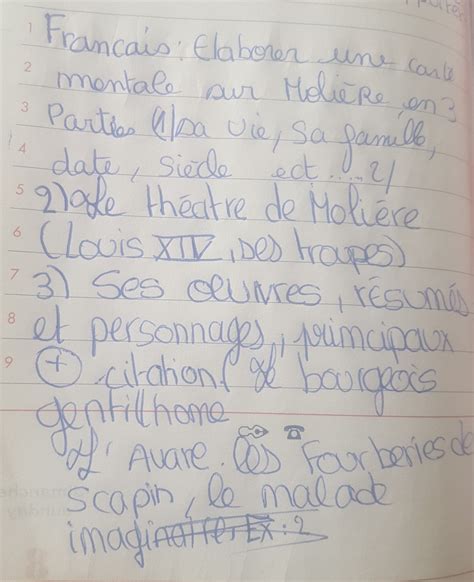 1 Francais: Elaborer une carte
2 mentale sur Molière, en 3
3 Parties 1) Sa vie, sa famille,
4 date, siècle ect.... 2/
5 2) Le théatre de Molière
6 (Louis XIV, ses troupes)
7 3) Ses oeuvres, résumés
8 et personnages, principaux
9 + citation (le bourgeois
gentilhome
L'Avare. les Fourberies de
Scapin, le malade
imaginaire, Ex: 2